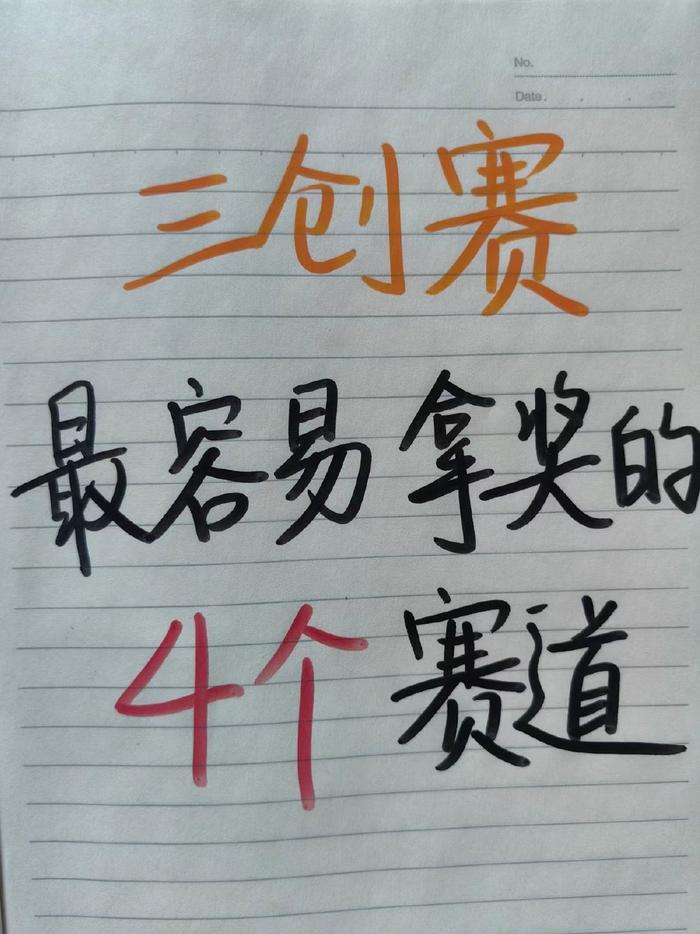 No.
Date. . .
三创赛
最容易拿奖的
4个赛道